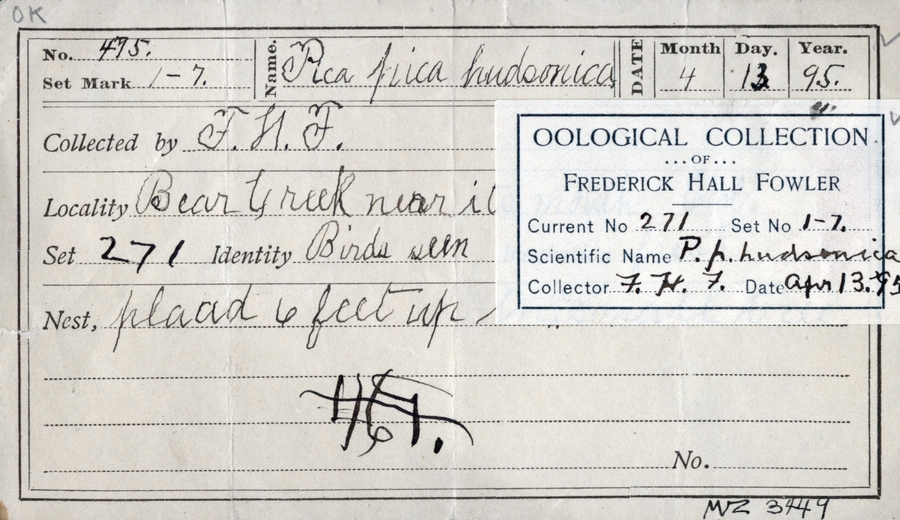 OK
No. 475. Name. Pica pica hudsonica DATE Month Day. Year.
Set Mark 1-7. 4 13 95.
Collected by F. H. F.
Locality Bear Creek near its
Set 271 Identity Birds seen
Nest, placed 6 feet up
No.
OOLOGICAL COLLECTION
...OF...
FREDERICK HALL FOWLER
Current No 271 Set No 1-7.
Scientific Name P. p. hudsonica
Collector F. H. F. Date Apr 13-95
MVZ 3449